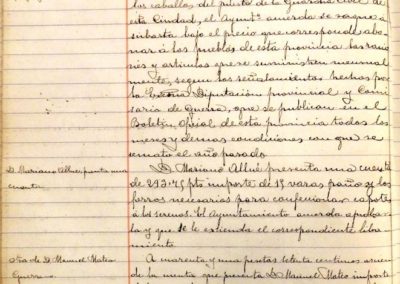 los caballos del puesto de la Guardia Civil de
esta Ciudad, el Aymtº acuerda se saque á
subasta bajo el precio que corresponde abo-
nar á los pueblos de esta provincia las racio-
nes y articulos que se suministren mensual
mente, segun los señalamientos hechos por
la Excma Diputación provincial y Comi
saria de Guerra, que se publican en el
Boletin Oficial de esta provincia todos los
meses y demas condiciones con que se
remató el año pasado.
D. Mariano Allué presenta una
cuenta
D. Mariano Allué presenta una cuenta
de 293.75 pts importe de 15 varas paño y los
forros necesarios para confeccionar capotes
á los serenos. El Ayuntamiento acuerda aprobar
la y que se le expenda el correspondiente libra
miento
Otra de D. Manuel Mateo
Guerrero
A cuarenta y una pesetas setenta centimos asciende
la cuenta que presenta D. Manuel Mateo importe